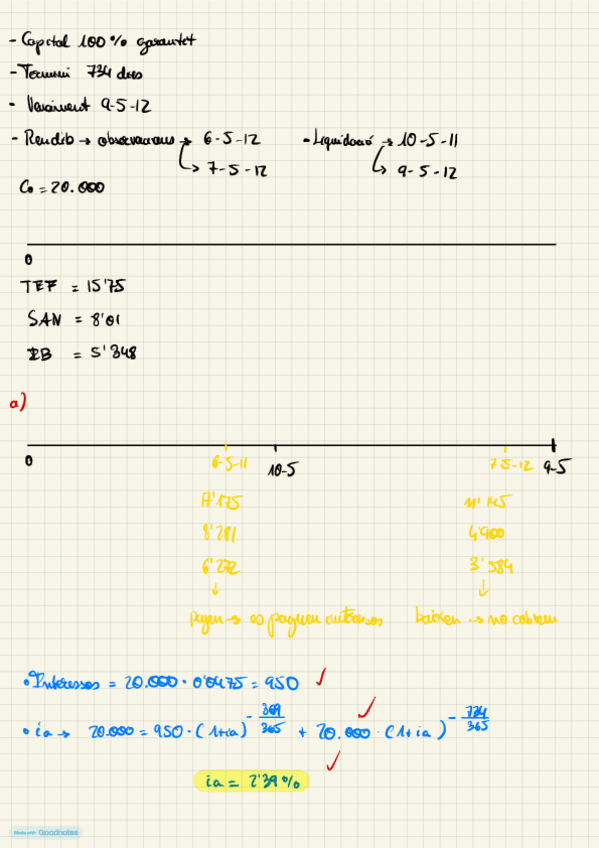 - Capital 100% garantit
- Termini 734 dies
- Venciment 9-5-12
- Rendib → observacions → 6-5-12 • Liquidació → 10-5-11
↳ 7-5-12 ↳ 9-5-12
C₀ = 20.000
0
TEF = 15'75
SAN = 8'01
IB = 5'348
a)
0 6-5-11 10-5 7-5-12 9-5
17'175 11'145
8'281 4'900
6'272 3'584
↓ ↓
pugen → es paguen interessos baixen → no cobrem
• Interessos = 20.000 · 0'0475 = 950 ✓
• ia → 20.000 = 950 · (1+ia)^-369/365 + 20.000 · (1+ia)^-734/365 ✓
ia = 2'39% ✓
Made with Goodnotes